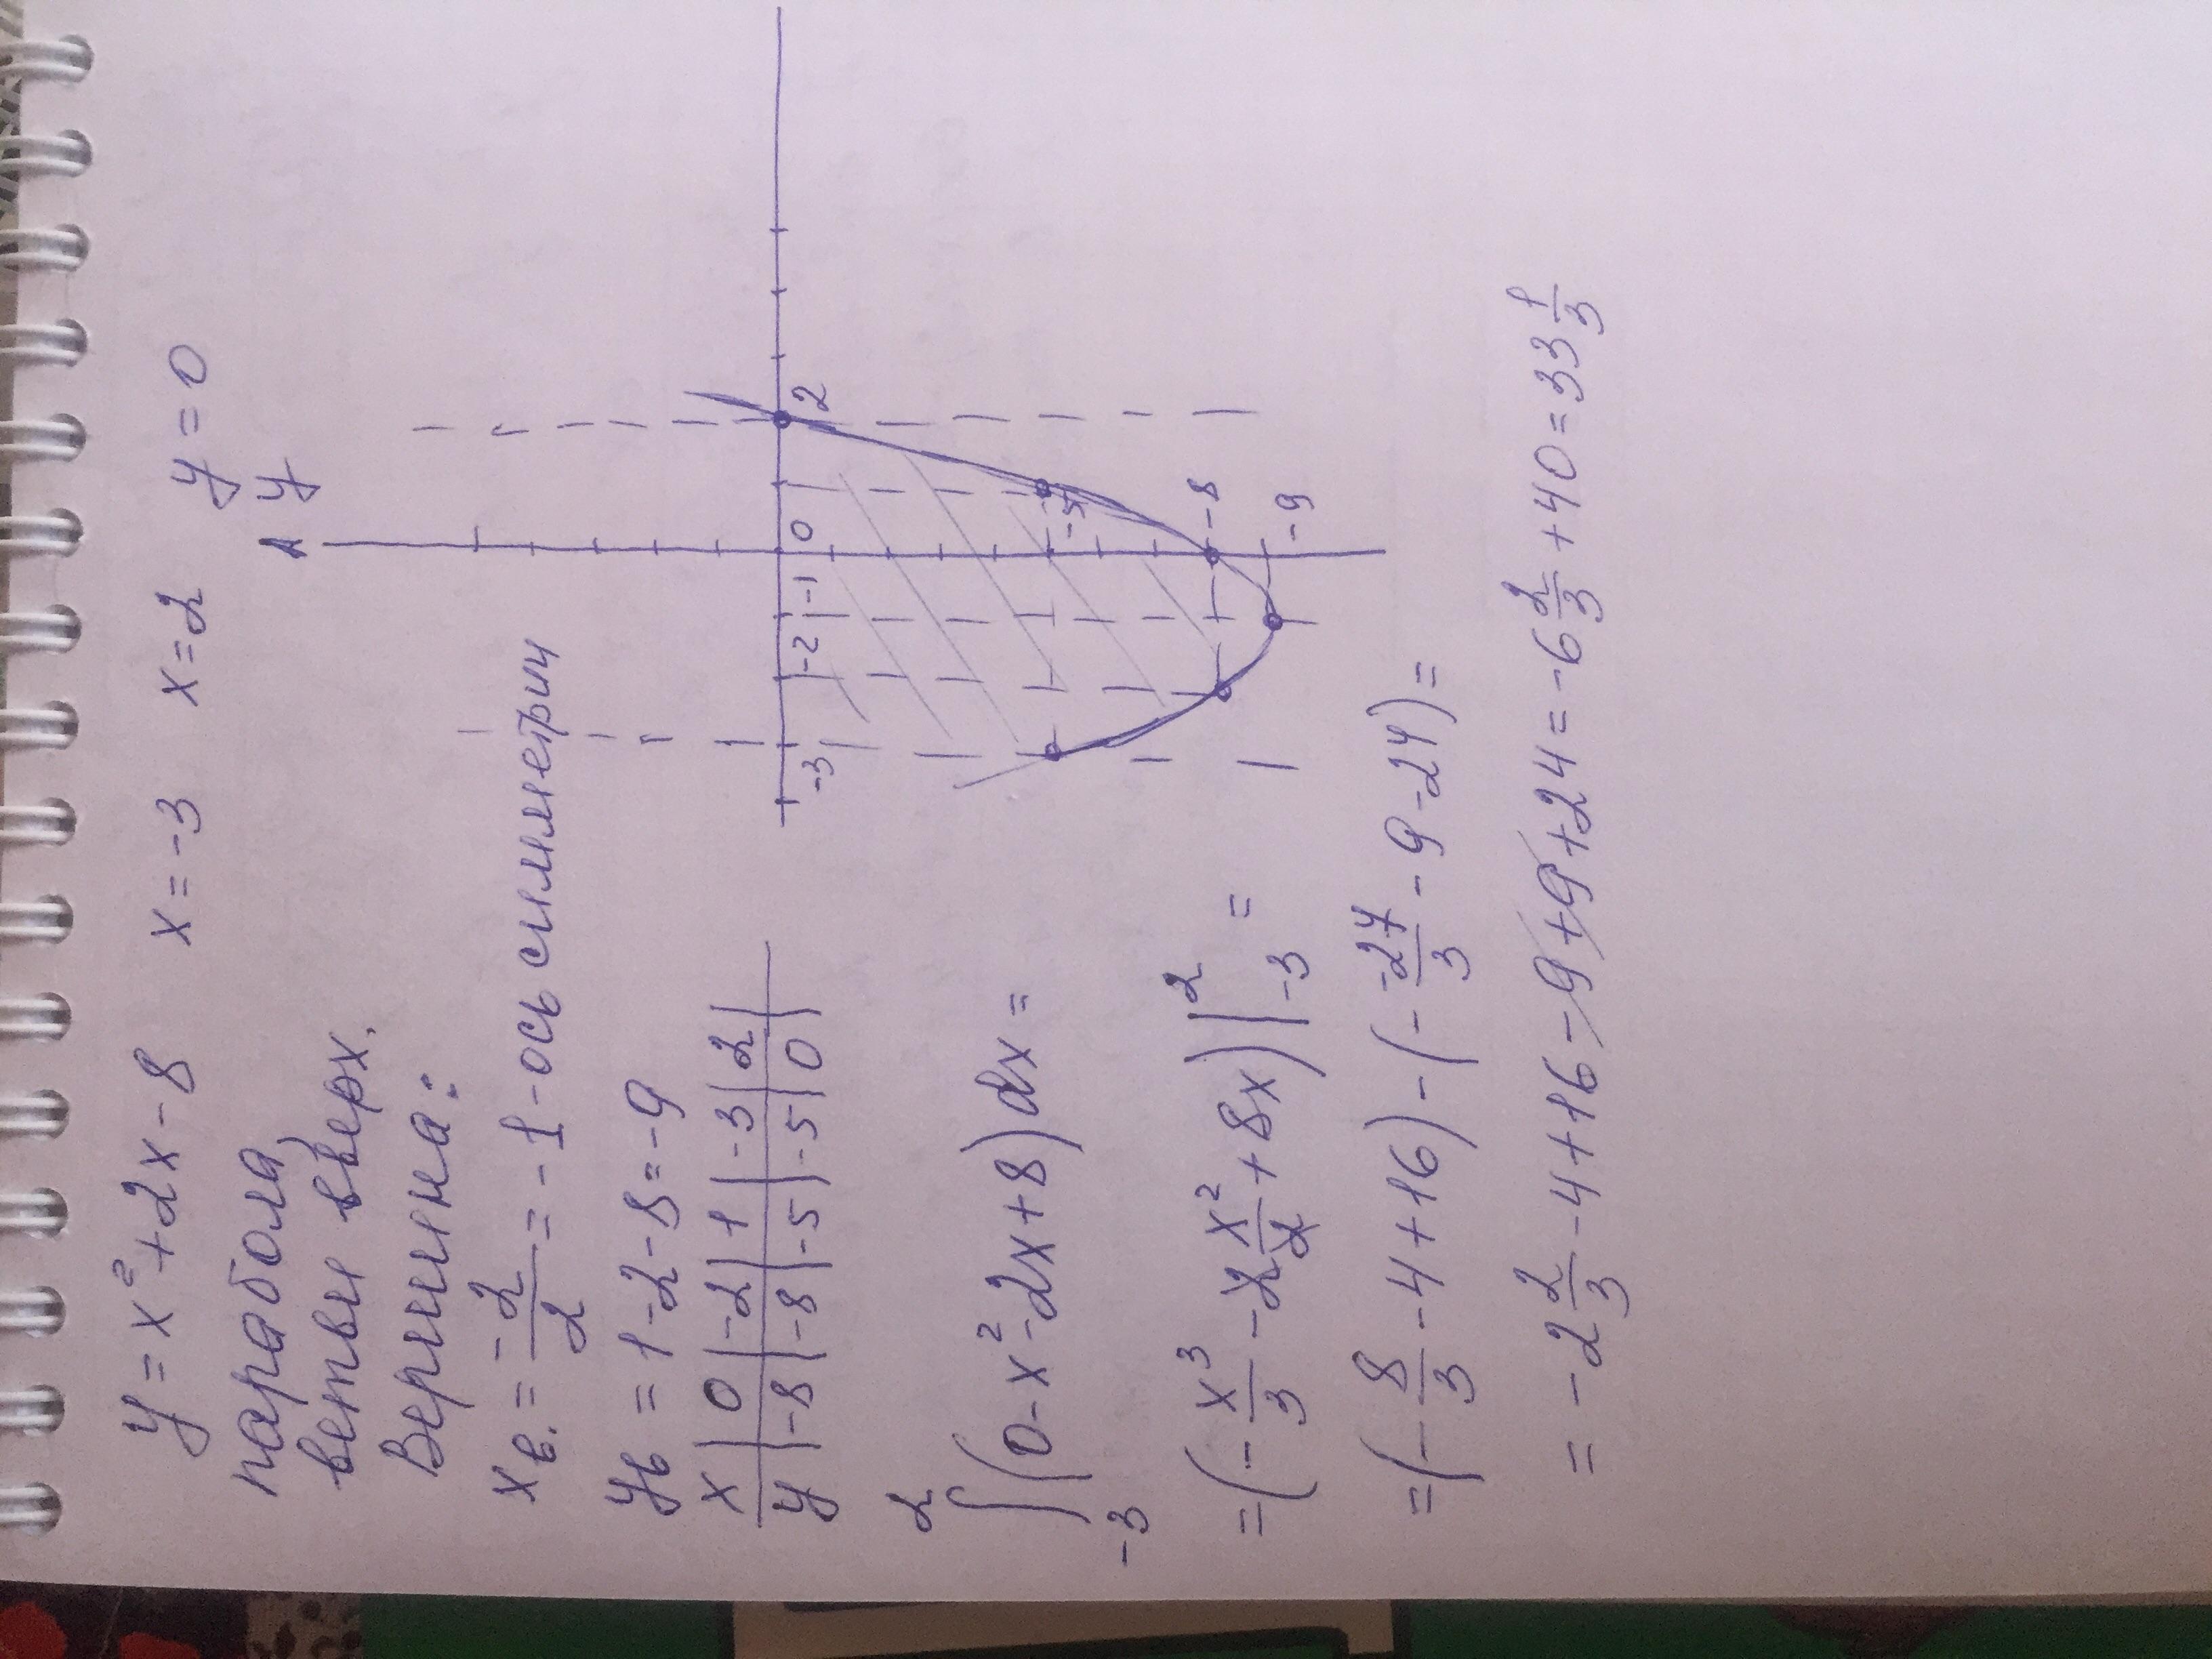 y = x² + 2x - 8   x = -3   x = 2   y = 0
парабола,
ветви вверх.
Вершина:
xв. = -2/2 = -1 - ось симметрии
yв = 1 - 2 - 8 = -9
x | 0 | -2 | 1 | -3 | 2 |
y | -8 | -8 | -5 | -5 | 0 |
y
-3 -2 -1 0 2
-5
-8
-9
2
∫ (0 - x² - 2x + 8) dx =
-3
= (- x³/3 - 2 x²/2 + 8x) |²₋₃ =
= (- 8/3 - 4 + 16) - (- -27/3 - 9 - 24) =
= -2 2/3 - 4 + 16 - 9 + 9 + 24 = -6 2/3 + 40 = 33 1/3